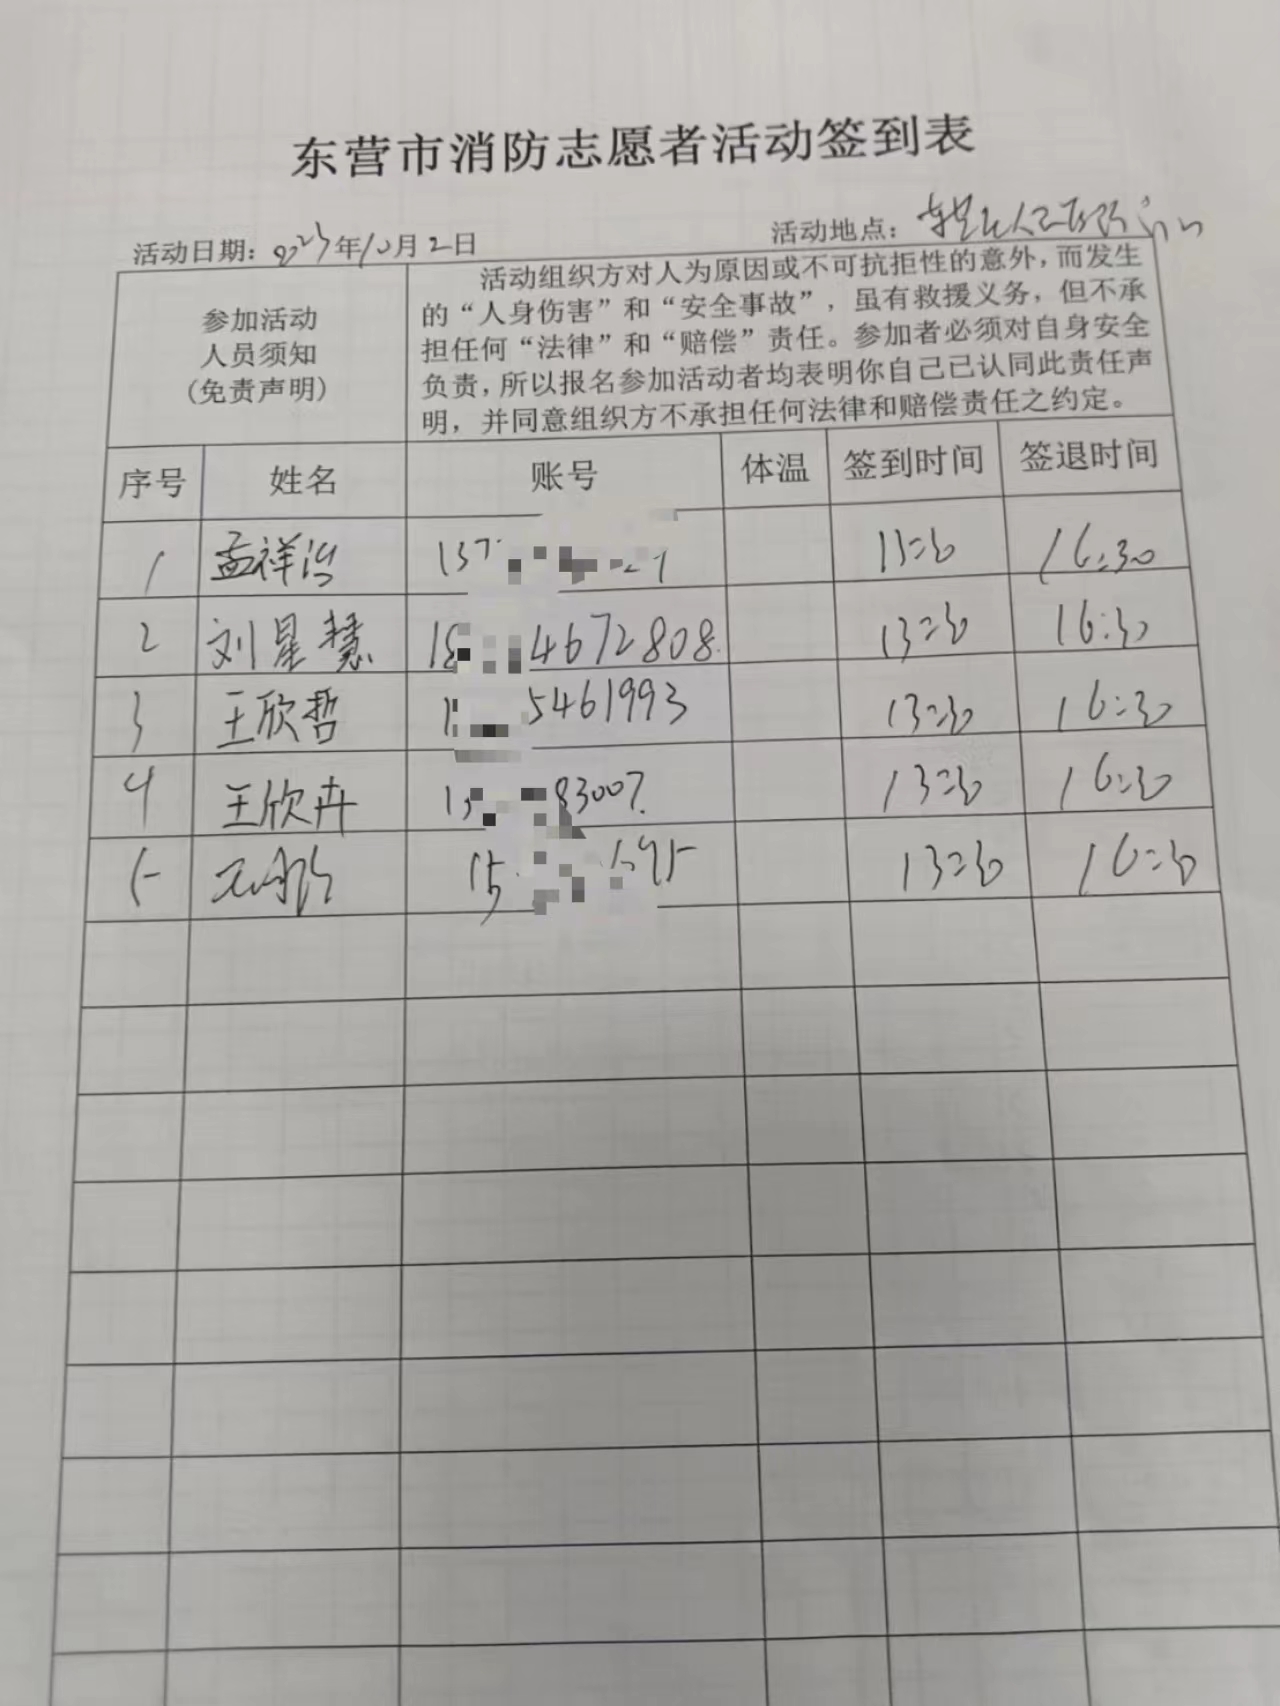 东营市消防志愿者活动签到表
活动日期：2023年10月2日 活动地点：
参加活动
人员须知
(免责声明)
活动组织方对人为原因或不可抗拒性的意外，而发生
的“人身伤害”和“安全事故”，虽有救援义务，但不承
担任何“法律”和“赔偿”责任。参加者必须对自身安全
负责，所以报名参加活动者均表明你自己已认同此责任声
明，并同意组织方不承担任何法律和赔偿责任之约定。
序号 姓名 账号 体温 签到时间 签退时间
1 孟祥治 137 13:30 16:30
2 刘星慧 18 4672808 13:30 16:30
3 王欣哲 1 5461993 13:30 16:30
4 王欣卉 1 83007 13:30 16:30
5 15 695 13:30 16:30